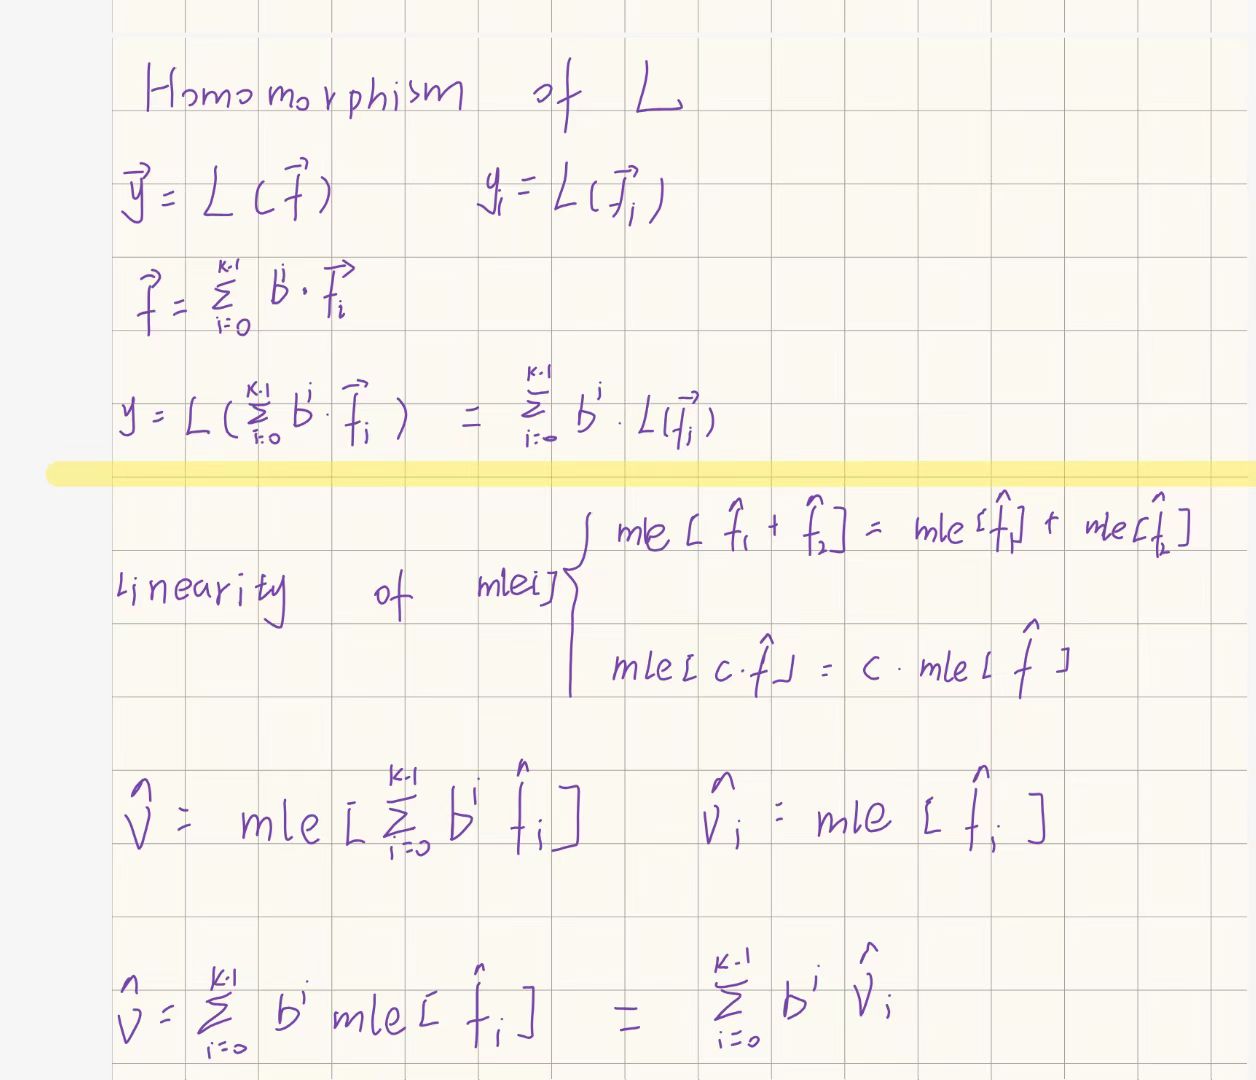 Homomorphism of L
$\vec{y} = L(\vec{f})$ $y_i = L(\vec{f_i})$
$\vec{f} = \sum_{i=0}^{k-1} b^i \cdot \vec{f_i}$
$y = L(\sum_{i=0}^{k-1} b^i \cdot \vec{f_i}) = \sum_{i=0}^{k-1} b^i \cdot L(\vec{f_i})$
$mle[\hat{f}_1 + \hat{f}_2] = mle[\hat{f}_1] + mle[\hat{f}_2]$
Linearity of mle[]
$mle[c \cdot \hat{f}] = c \cdot mle[\hat{f}]$
$\hat{v} = mle[\sum_{i=0}^{k-1} b^i \hat{f}_i]$ $\hat{v}_i = mle[\hat{f}_i]$
$\hat{v} = \sum_{i=0}^{k-1} b^i mle[\hat{f}_i] = \sum_{i=0}^{k-1} b^i \hat{v}_i$